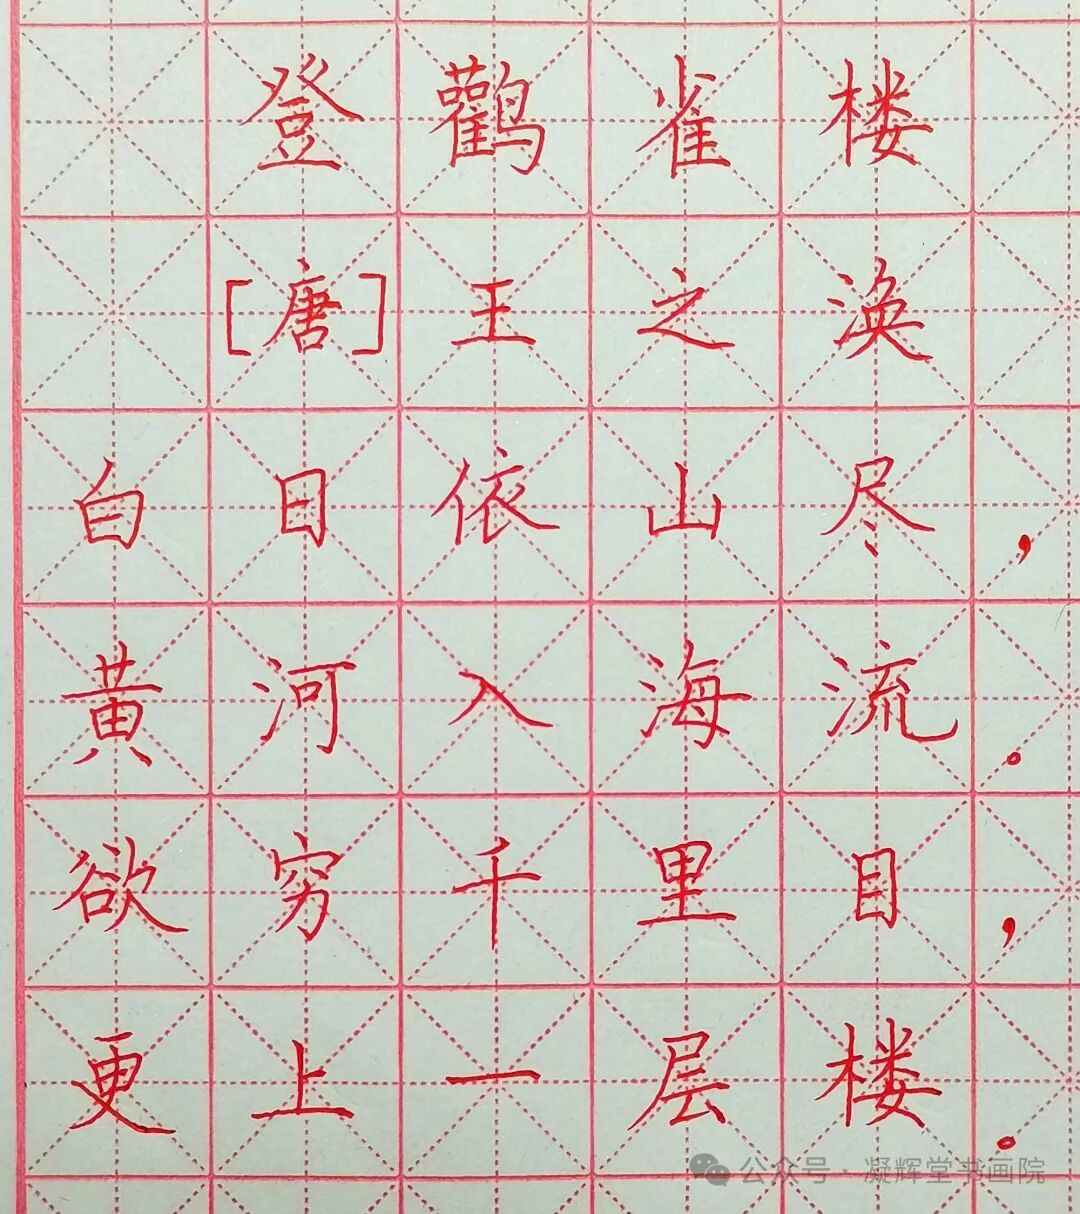 登鹳雀楼
[唐]王之涣
白日依山尽，
黄河入海流。
欲穷千里目，
更上一层楼。
公众号·凝辉堂书画院